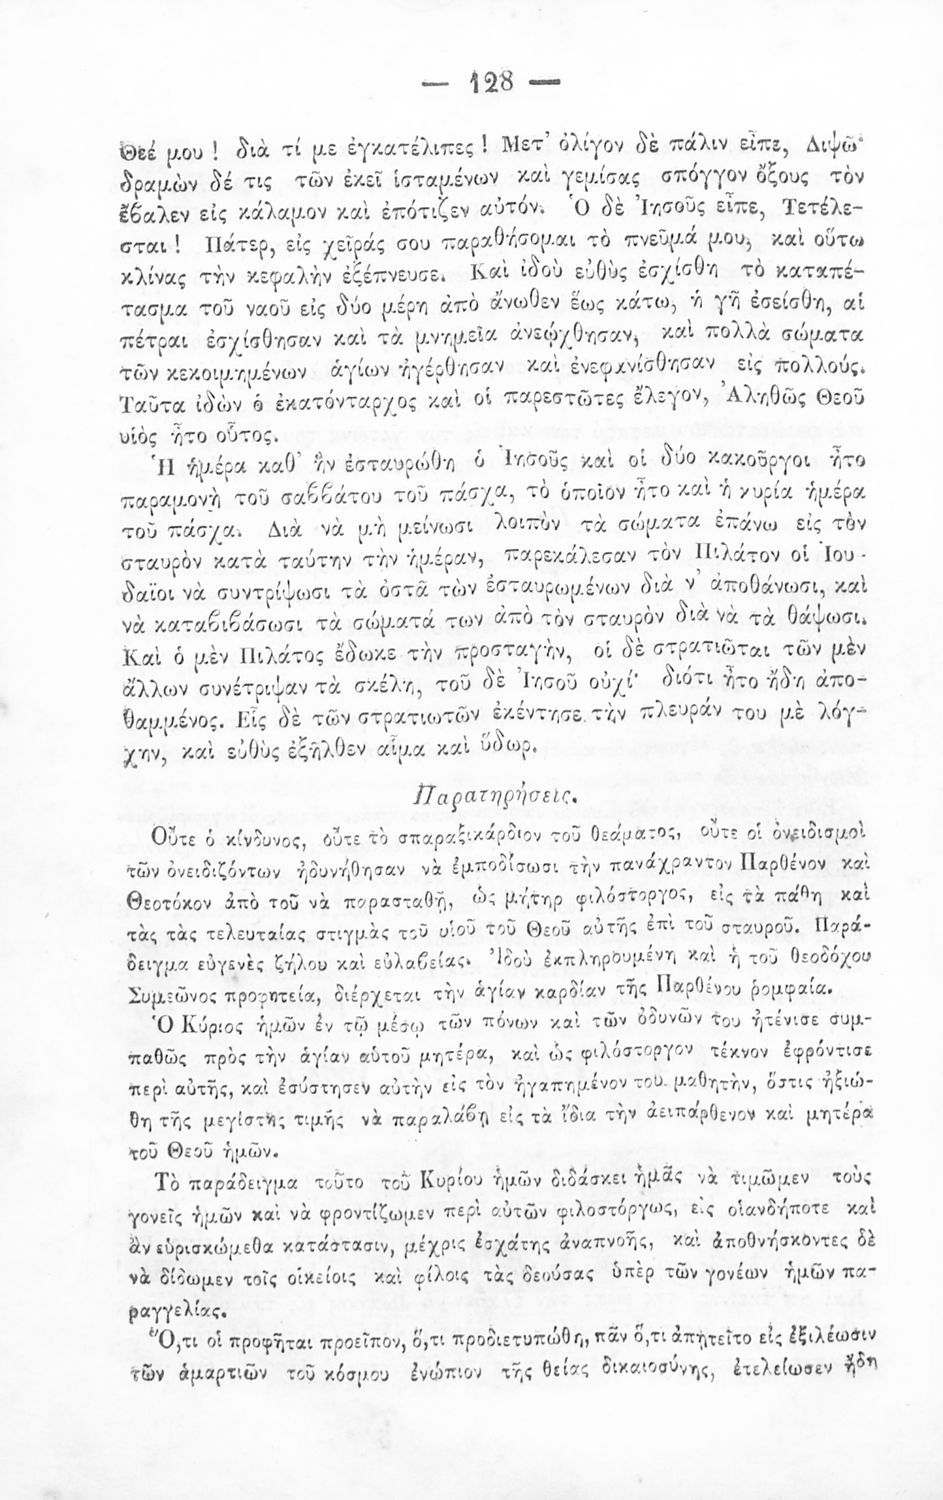 — 128 —
Θεέ μου ! διὰ τί με ἐγκατέλιπες ! Μετ' ὀλίγον δὲ πάλιν εἶπε, Διψῶ·
δραμὼν δέ τις τῶν ἐκεῖ ἱσταμένων καὶ γεμίσας σπόγγον ὄξους τὸν
ἔβαλεν εἰς κάλαμον καὶ ἐπότιζεν αὐτόν. Ὁ δὲ Ἰησοῦς εἶπε, Τετέλε-
σται ! Πάτερ, εἰς χεῖράς σου παραθήσομαι τὸ πνεῦμά μου, καὶ οὕτω
κλίνας τὴν κεφαλὴν ἐξέπνευσε. Καὶ ἰδοὺ εὐθὺς ἐσχίσθη τὸ καταπέ-
τασμα τοῦ ναοῦ εἰς δύο μέρη ἀπὸ ἄνωθεν ἕως κάτω, ἡ γῆ ἐσείσθη, αἱ
πέτραι ἐσχίσθησαν καὶ τὰ μνημεῖα ἀνεῴχθησαν, καὶ πολλὰ σώματα
τῶν κεκοιμημένων ἁγίων ἠγέρθησαν καὶ ἐνεφανίσθησαν εἰς πολλούς.
Ταῦτα ἰδὼν ὁ ἑκατόνταρχος καὶ οἱ παρεστῶτες ἔλεγον, Ἀληθῶς Θεοῦ
υἱὸς ἦτο οὗτος.
Ἡ ἡμέρα καθ' ἣν ἐσταυρώθη ὁ Ἰησοῦς καὶ οἱ δύο κακοῦργοι ἦτο
παραμονὴ τοῦ σαββάτου τοῦ πάσχα, τὸ ὁποῖον ἦτο καὶ ἡ κυρία ἡμέρα
τοῦ πάσχα. Διὰ νὰ μὴ μείνωσι λοιπὸν τὰ σώματα ἐπάνω εἰς τὸν
σταυρὸν κατὰ ταύτην τὴν ἡμέραν, παρεκάλεσαν τὸν Πιλάτον οἱ Ἰου-
δαῖοι νὰ συντρίψωσι τὰ ὀστᾶ τῶν ἐσταυρωμένων διὰ ν' ἀποθάνωσι, καὶ
νὰ καταβιβάσωσι τὰ σώματά των ἀπὸ τὸν σταυρὸν διὰ νὰ τὰ θάψωσι.
Καὶ ὁ μὲν Πιλάτος ἔδωκε τὴν προσταγὴν, οἱ δὲ στρατιῶται τῶν μὲν
ἄλλων συνέτριψαν τὰ σκέλη, τοῦ δὲ Ἰησοῦ οὐχί· διότι ἦτο ἤδη ἀπο-
θαμμένος. Εἷς δὲ τῶν στρατιωτῶν ἐκέντησε τὴν πλευράν του μὲ λόγ-
χην, καὶ εὐθὺς ἐξῆλθεν αἷμα καὶ ὕδωρ.
Παρατηρήσεις.
Οὔτε ὁ κίνδυνος, οὔτε τὸ σπαραξικάρδιον τοῦ θεάματος, οὔτε οἱ ὀνειδισμοὶ
τῶν ὀνειδιζόντων ἠδυνήθησαν νὰ ἐμποδίσωσι τὴν πανάχραντον Παρθένον καὶ
Θεοτόκον ἀπὸ τοῦ νὰ παρασταθῇ, ὡς μήτηρ φιλόστοργος, εἰς τὰ πάθη καὶ
τὰς τὰς τελευταίας στιγμὰς τοῦ υἱοῦ τοῦ Θεοῦ αὐτῆς ἐπὶ τοῦ σταυροῦ. Παρά-
δειγμα εὐγενὲς ζήλου καὶ εὐλαβείας. Ἰδοὺ ἐκπληρουμένη καὶ ἡ τοῦ θεοδόχου
Συμεῶνος προφητεία, διέρχεται τὴν ἁγίαν καρδίαν τῆς Παρθένου ῥομφαία.
Ὁ Κύριος ἡμῶν ἐν τῷ μέσῳ τῶν πόνων καὶ τῶν ὀδυνῶν του ἠτένισε συμ-
παθῶς πρὸς τὴν ἁγίαν αὑτοῦ μητέρα, καὶ ὡς φιλόστοργον τέκνον ἐφρόντισε
περὶ αὐτῆς, καὶ ἐσύστησεν αὐτὴν εἰς τὸν ἠγαπημένον του μαθητὴν, ὅστις ἠξιώ-
θη τῆς μεγίστης τιμῆς νὰ παραλάβῃ εἰς τὰ ἴδια τὴν ἀειπάρθενον καὶ μητέρα
τοῦ Θεοῦ ἡμῶν.
Τὸ παράδειγμα τοῦτο τοῦ Κυρίου ἡμῶν διδάσκει ἡμᾶς νὰ τιμῶμεν τοὺς
γονεῖς ἡμῶν καὶ νὰ φροντίζωμεν περὶ αὐτῶν φιλοστόργως, εἰς οἱανδήποτε καὶ
ἂν εὑρισκώμεθα κατάστασιν, μέχρις ἐσχάτης ἀναπνοῆς, καὶ ἀποθνήσκοντες δὲ
νὰ δίδωμεν τοῖς οἰκείοις καὶ φίλοις τὰς δεούσας ὑπὲρ τῶν γονέων ἡμῶν πα-
ραγγελίας.
Ὅ,τι οἱ προφῆται προεῖπον, ὅ,τι προδιετυπώθη, πᾶν ὅ,τι ἀπῃτεῖτο εἰς ἐξιλέωσιν
τῶν ἁμαρτιῶν τοῦ κόσμου ἐνώπιον τῆς θείας δικαιοσύνης, ἐτελείωσεν ἤδη